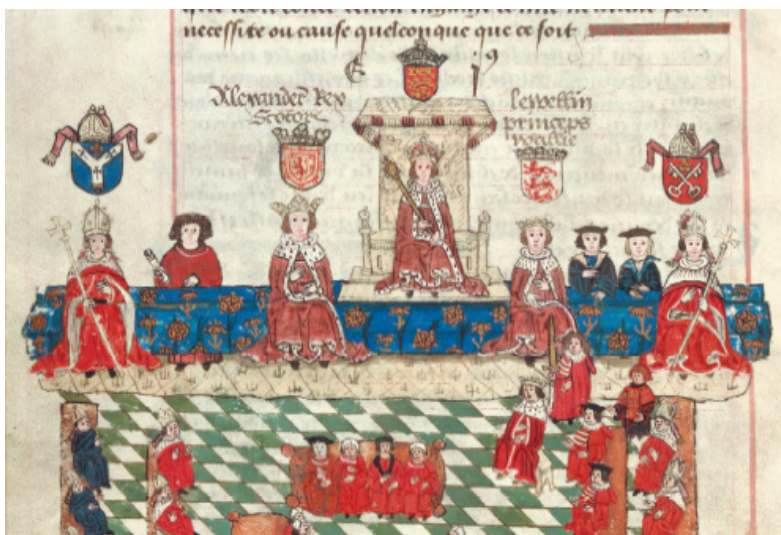 necessite ou cause quelconque que ce soit
E 9
Alexander Rex
Scotor
lewellin
princeps
wallie